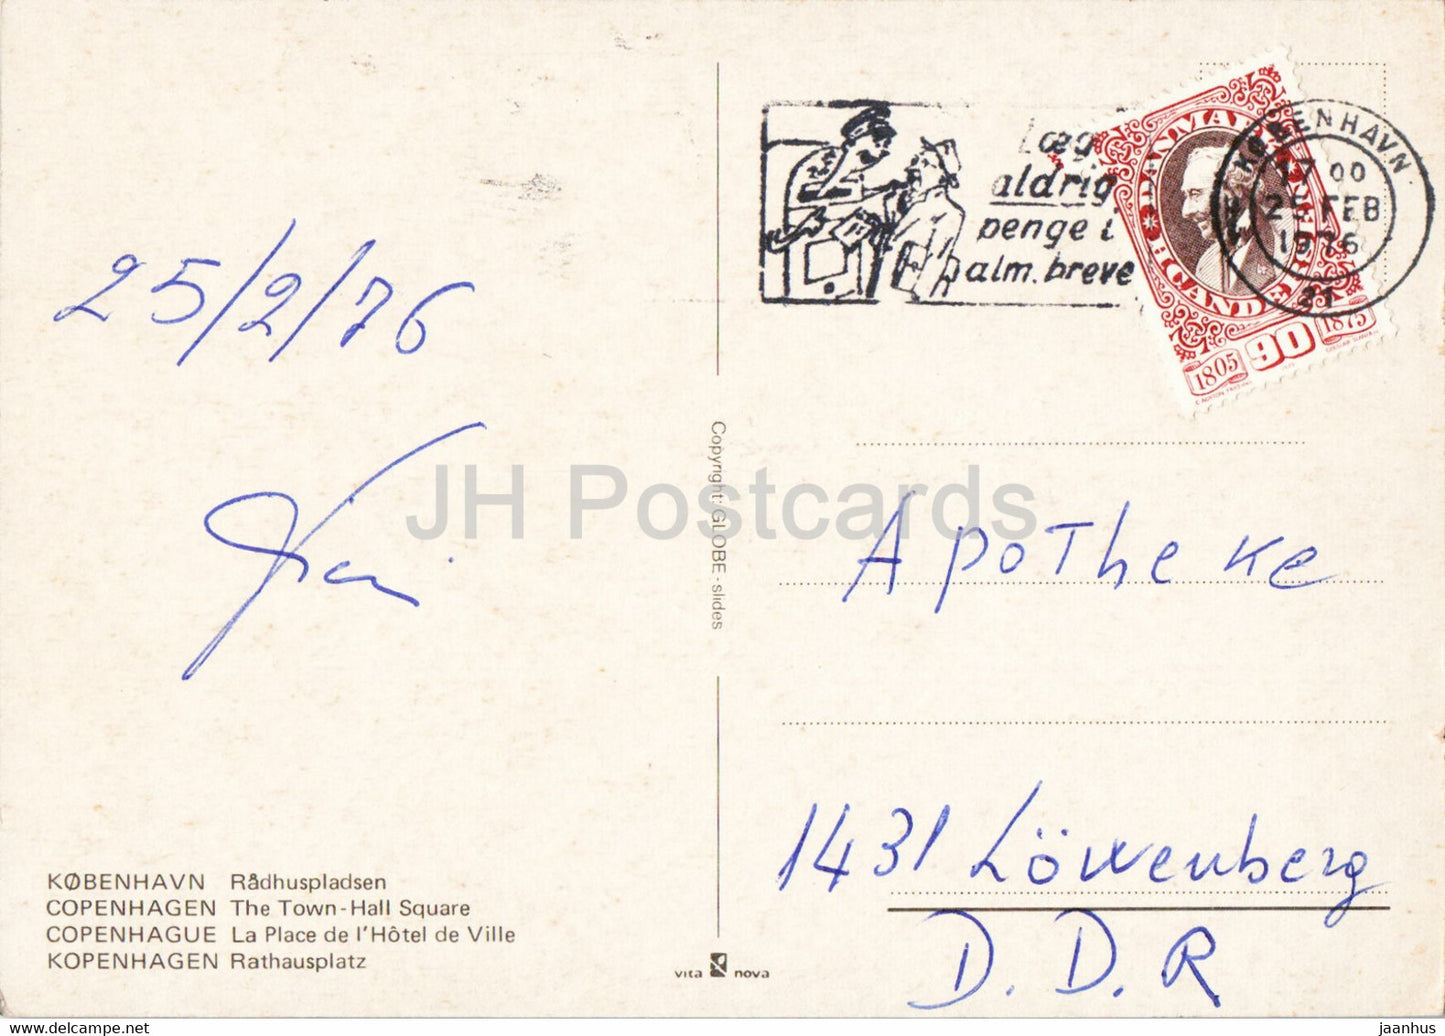 25/2/76
Læg
aldrig
penge i
alm. breve
KØBENHAVN
17 00
25 FEB
1976
21
DANMARK
H.C. ANDERSEN
1805 90 1875
Copyright: GLOBE - slides
JH Postcards
Apotheke
1431 Löwenberg
D. D. R
KØBENHAVN Rådhuspladsen
COPENHAGEN The Town-Hall Square
COPENHAGUE La Place de l'Hôtel de Ville
KOPENHAGEN Rathausplatz
vita nova
jh-postcards-online.myshopify.com
jaanhus